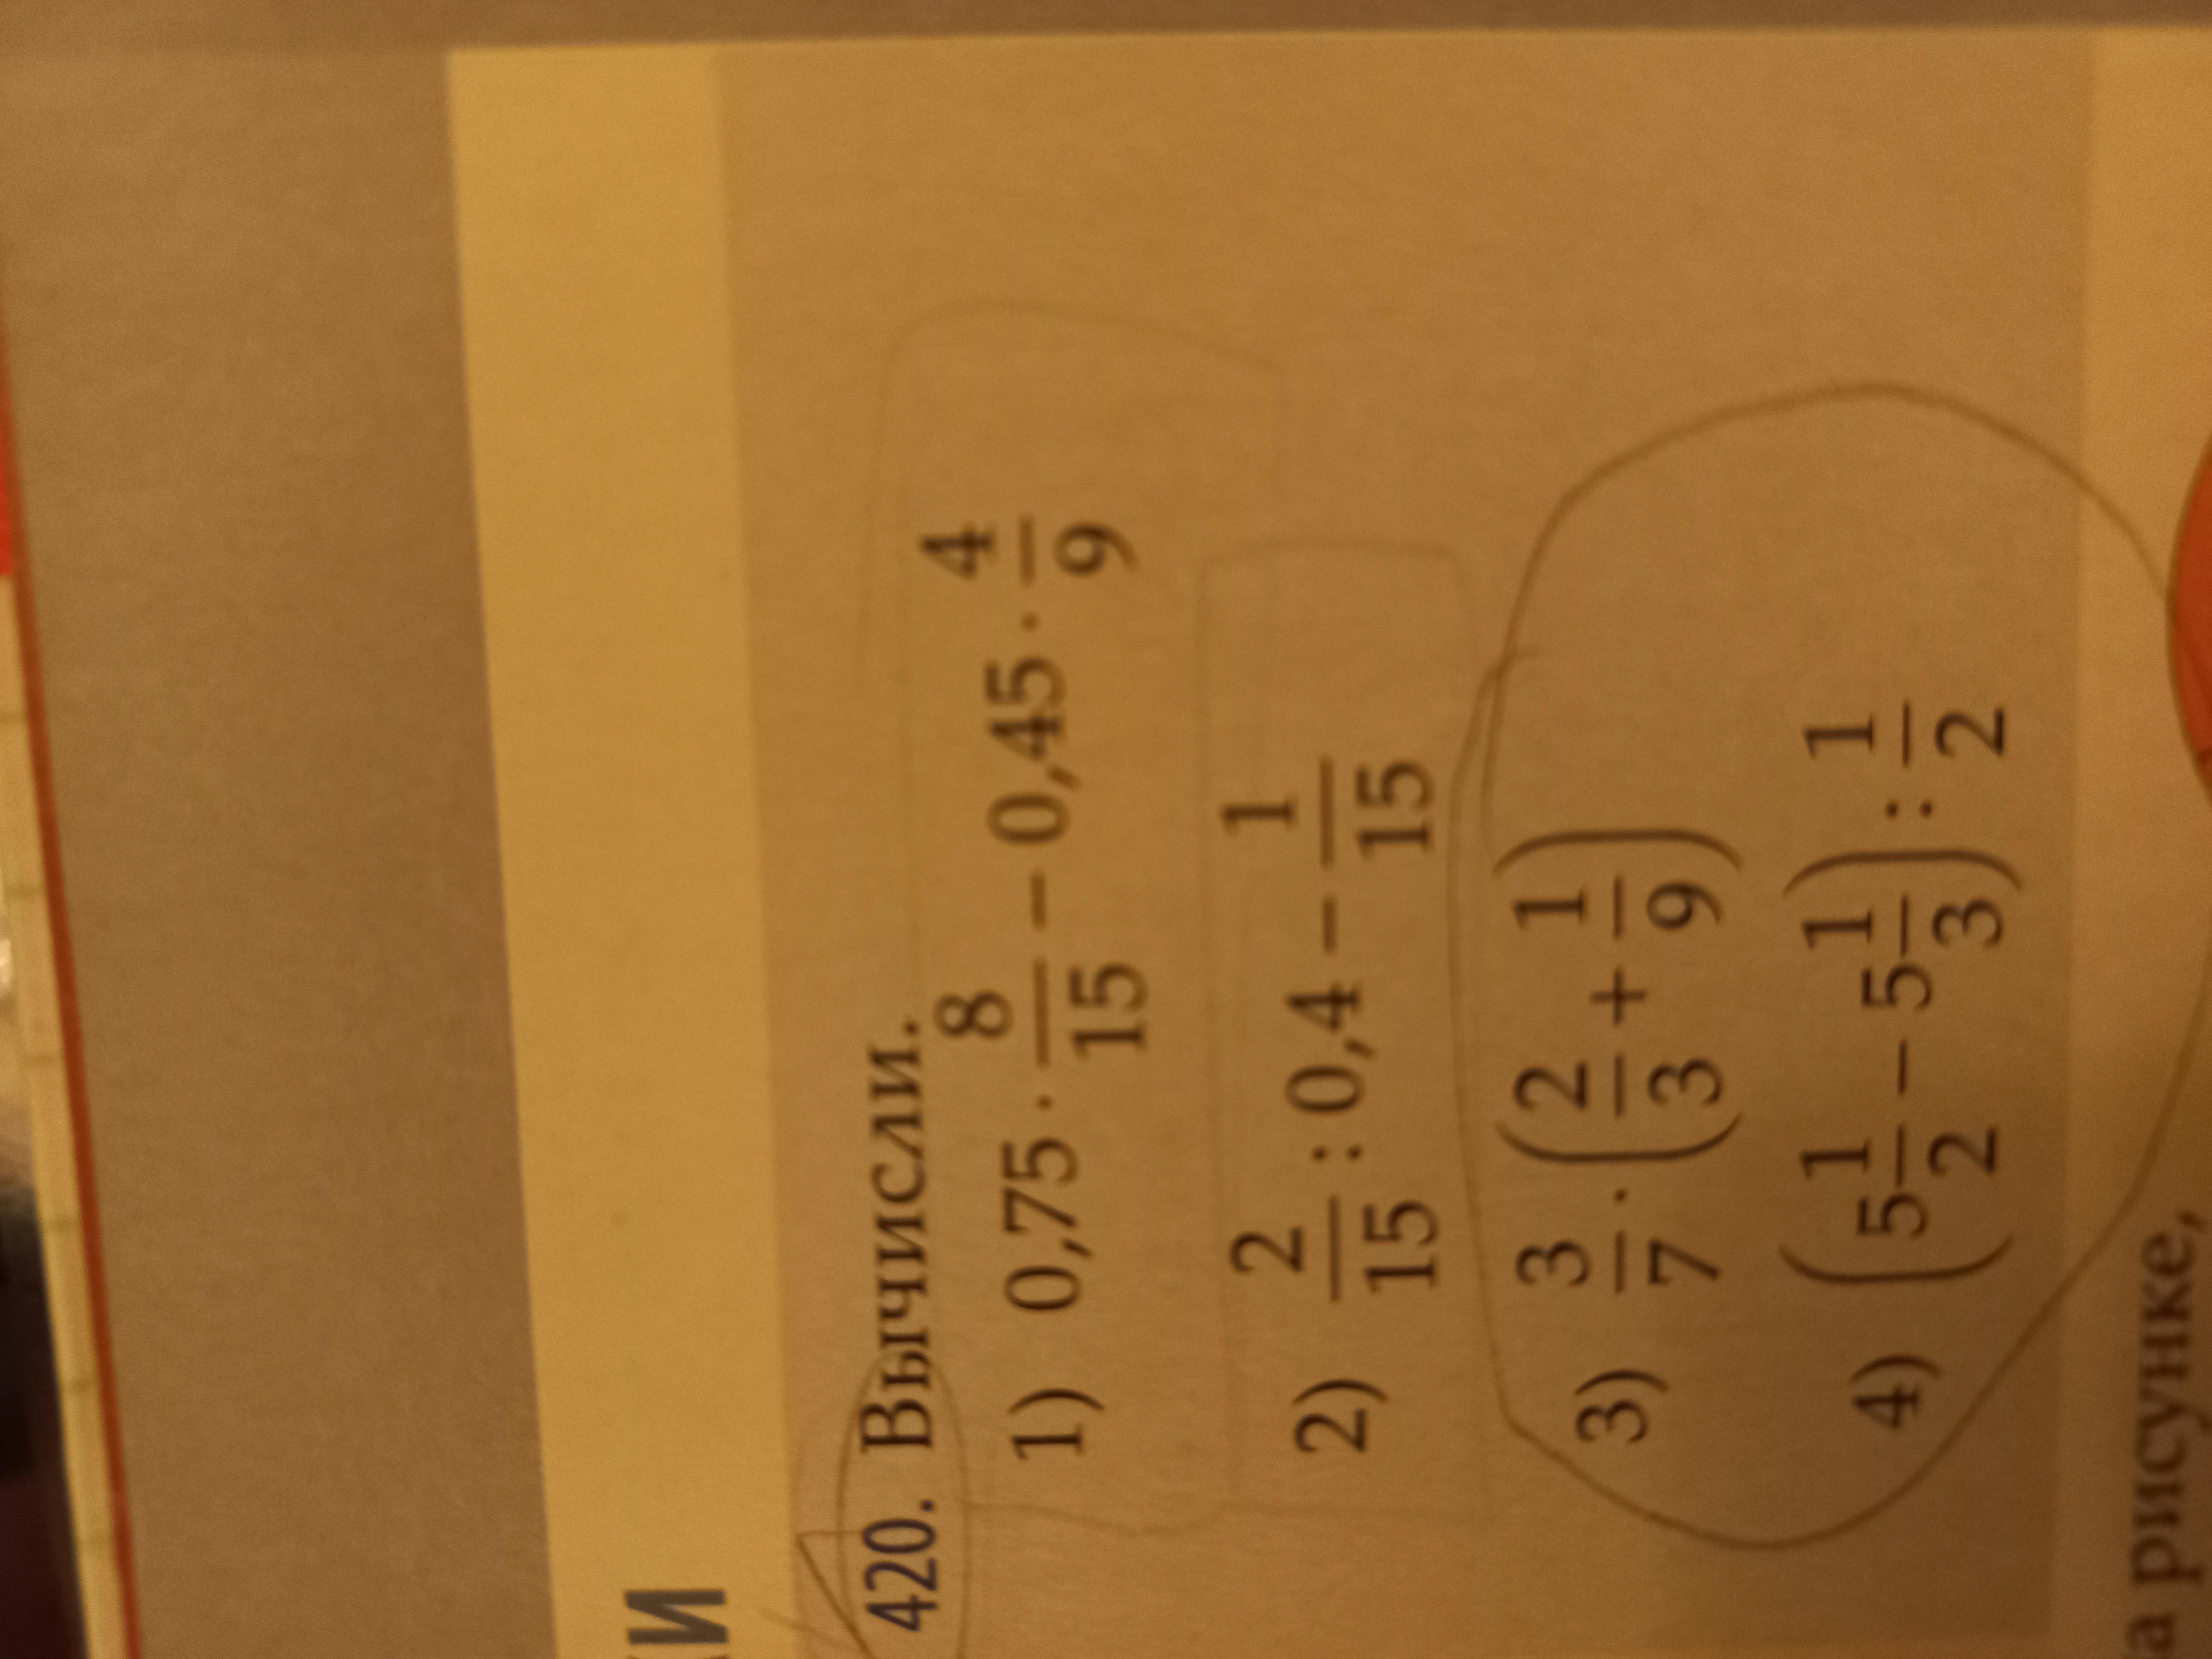 ки
420. Вычисли.
1) 0,75 · 8/15 − 0,45 · 4/9
2) 2/15 : 0,4 − 1/15
3) 3/7 · (2/3 + 1/9)
4) (5 1/2 − 5 1/3) : 1/2
а рисунке,